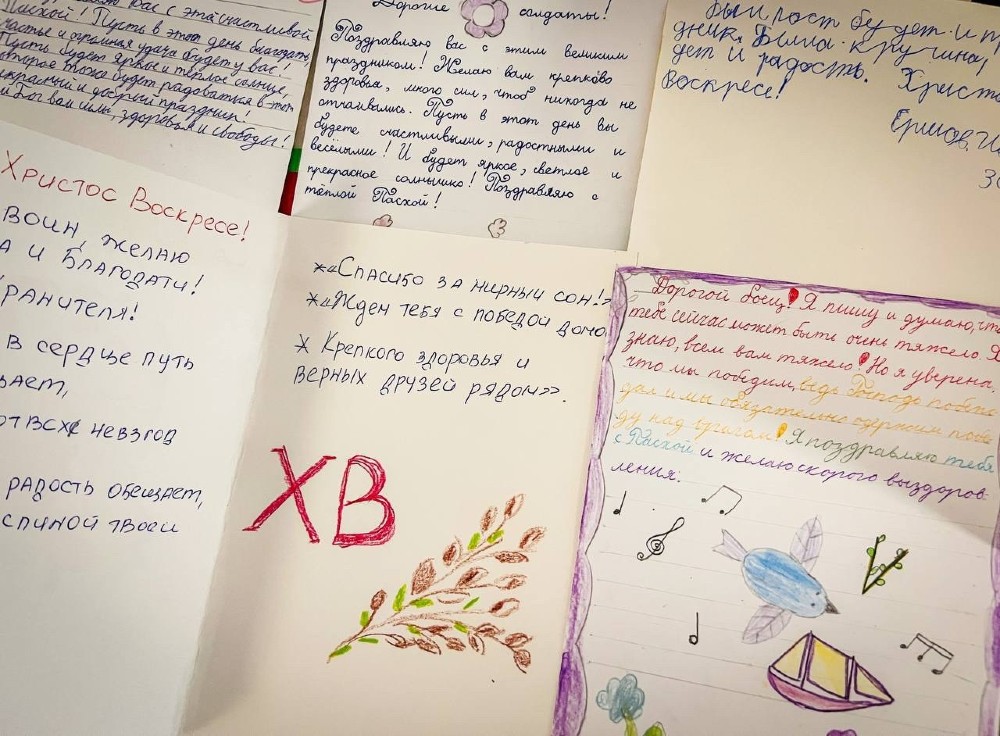 Вас с этой счастливой
Пасхой! Пусть в этот день благодать,
счастье и огромная удача будет у вас!
Пусть будет яркое и тёплое солнце,
которое тоже будет радоваться в этот
прекрасный и добрый праздник!
и Бог вам силы, здоровья и свободы!
Дорогие солдаты!
Поздравляю вас с этим великим
праздником! Желаю вам крепкого
здоровья, много сил, чтоб никогда не
отчаивались. Пусть в этот день вы
будете счастливыми, радостными и
весёлыми! И будет яркое, светлое и
прекрасное солнышко! Поздравляю с
тёплой Пасхой!
дет и радость. Христо
Воскресе!
Христос Воскресе!
воин, желаю
а и Благодати!
ранителя!
в сердце путь
ает,
от всх невзгод
радость обещает,
спиной твоей
*«Спасибо за мирный сон!»
*«Ждем тебя с победой домо
* Крепкого здоровья и
верных друзей рядом>>.
ХВ
Дорогой боец! Я пишу и думаю, что
тебе сейчас может быть очень тяжело. Я
знаю, всем вам тяжело! Но я уверена,
что мы победим, ведь Господь победи
дал и мы обязательно одержим побе
ду над врагом! Я поздравляю тебя
с Пасхой и желаю скорого выздоров-
ления.